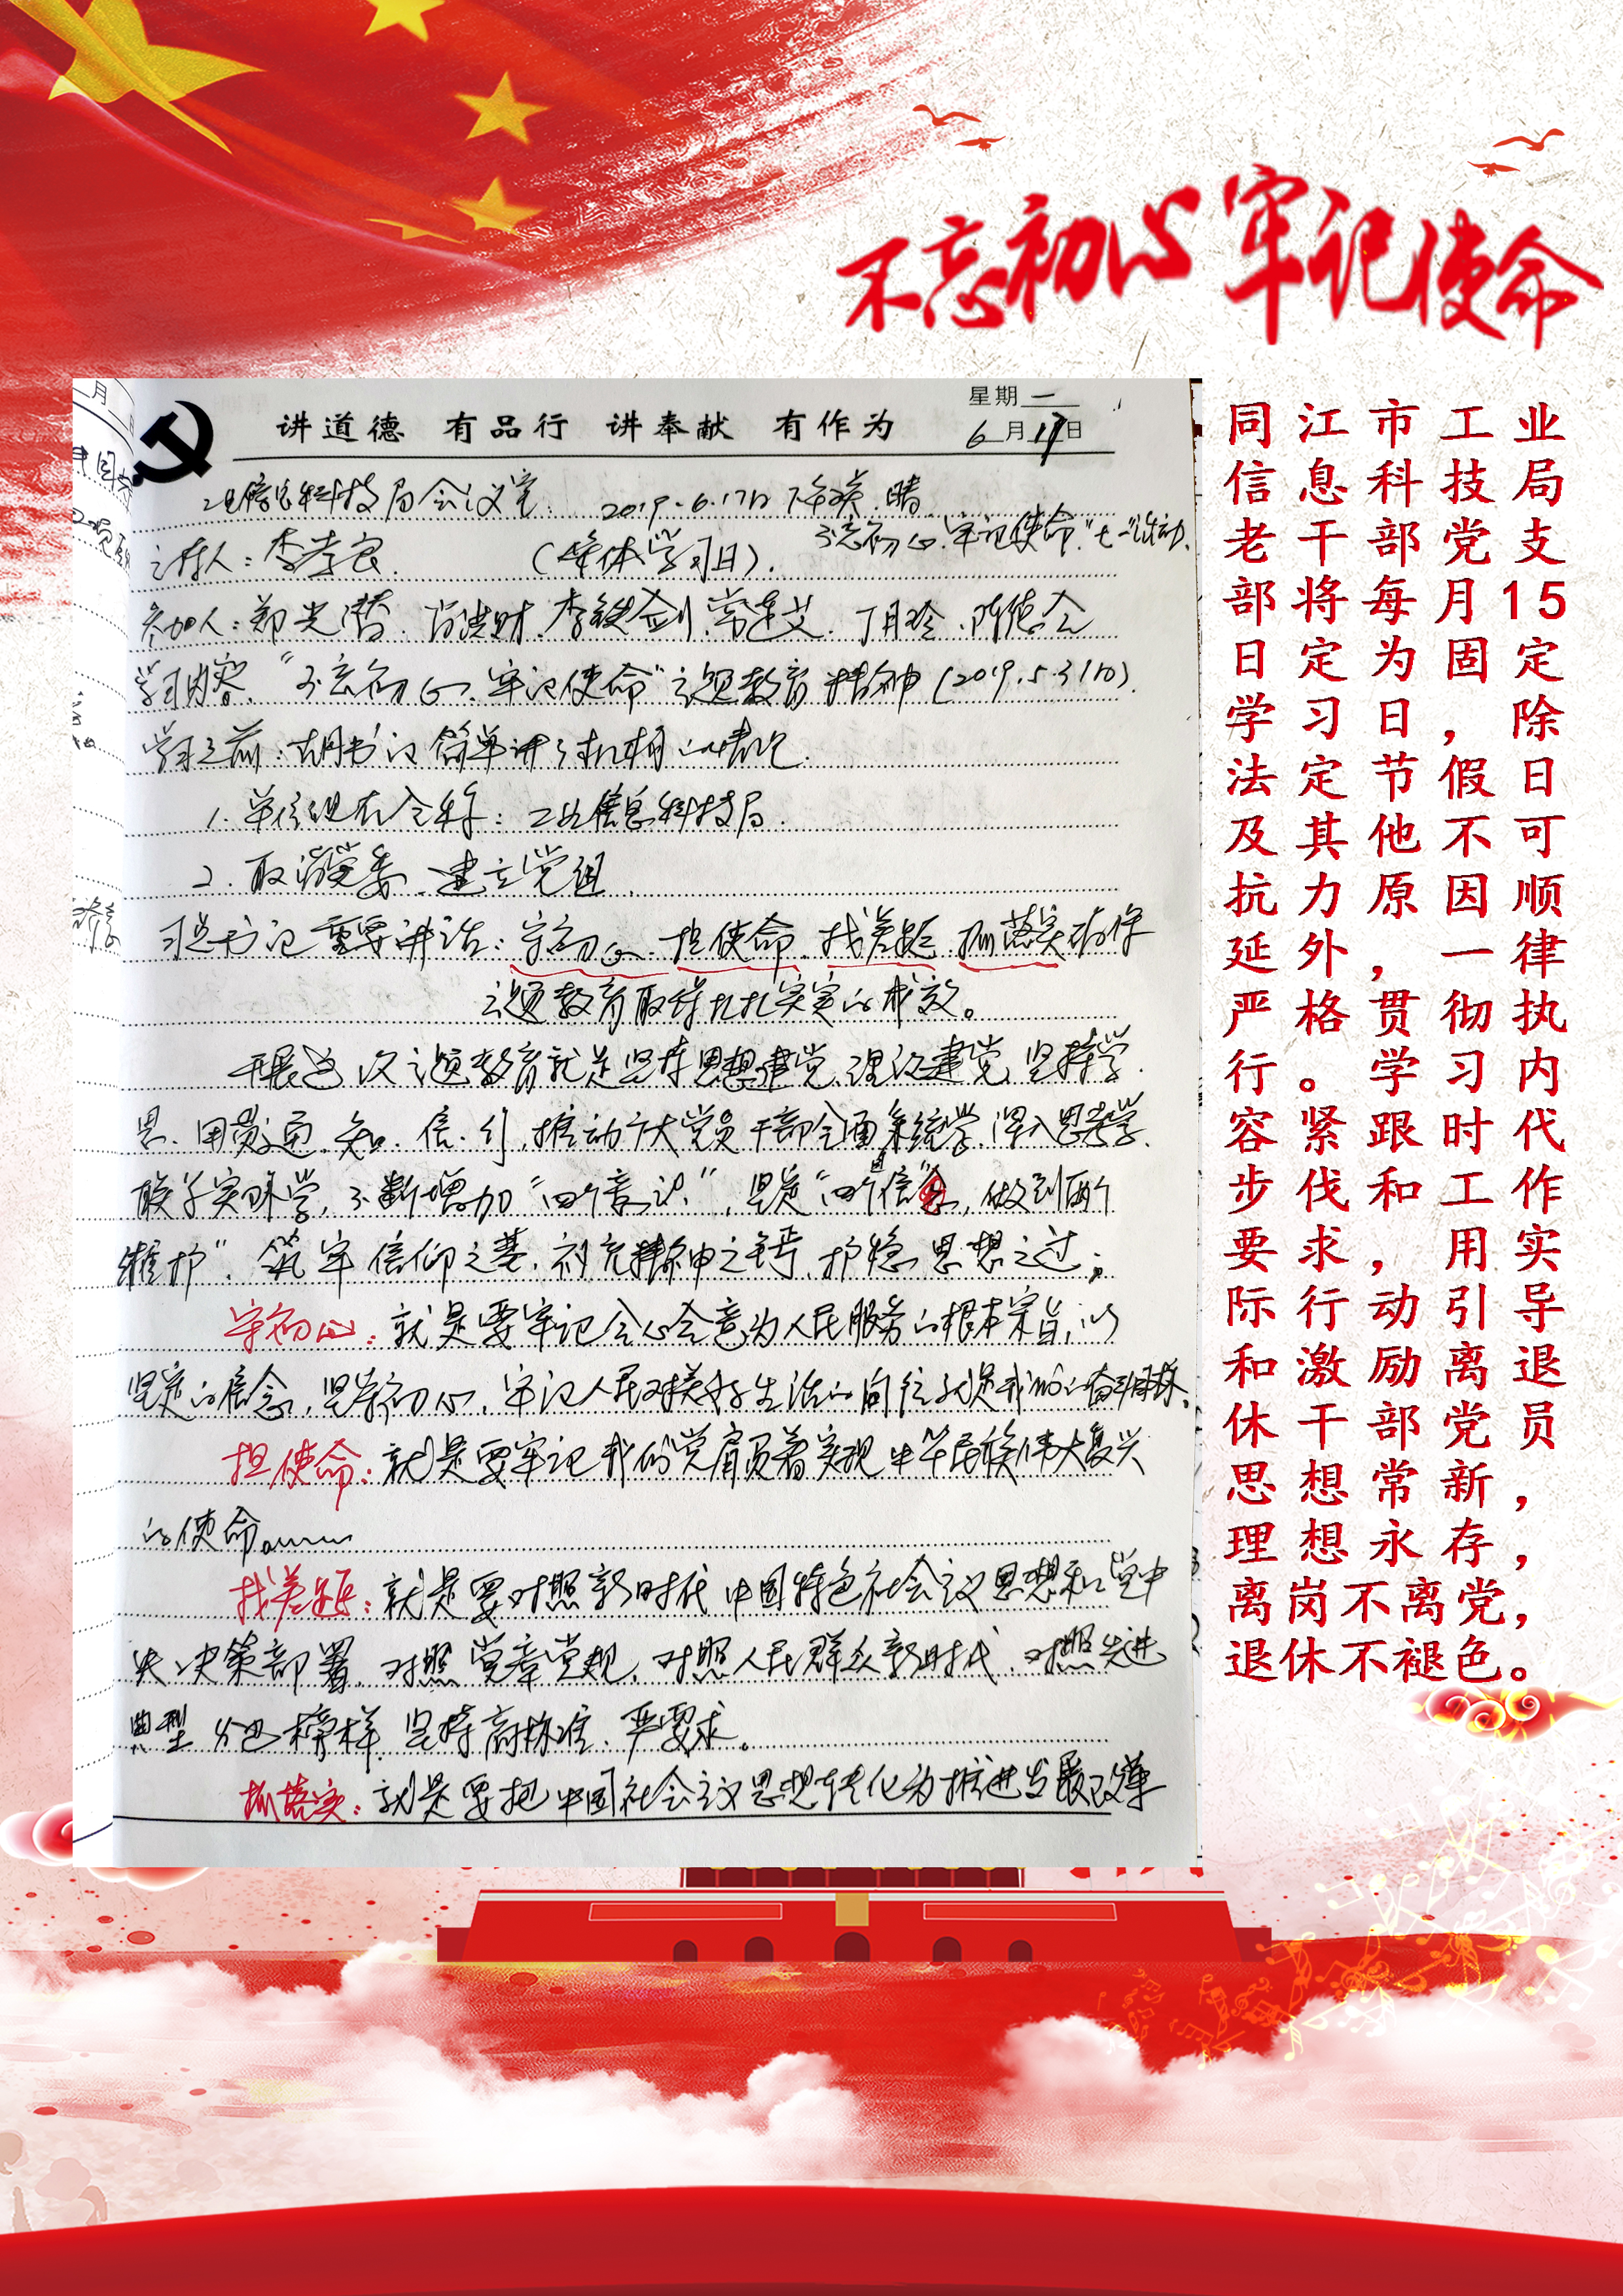 不忘初心 牢记使命
星期 一
讲道德 有品行 讲奉献 有作为
6月17日
工业信息科技局会议室 2019.6.17日 下午 晴
不忘初心、牢记使命"七一"活动
主持人：李孝良 （集体学习日）.
参加人：郑光 李铁剑 常连艾 丁月玲 陈德全
学习内容."不忘初心、牢记使命"主题教育精神(2019.5.31日).
学习之前：胡书记简单讲了机构情况.
1. 单位现在全称：工业信息科技局.
2. 取消党委、建立党组.
习总书记重要讲话：守初心、担使命、找差距、抓落实确保
主题教育取得扎扎实实的成效。
开展这次主题教育就是坚持思想建党、理论建党、坚持学、
思、用贯通、知、信、行,推动广大党员干部全面系统学、深入思考学、
联系实际学,不断增加"四个意识",坚定"四个自信",做到两个
维护",筑牢信仰之基、补充精神之钙、把稳思想之
守初心：就是要牢记全心全意为人民服务的根本宗旨,以
坚定的信念,坚守初心,牢记人民对美好生活的向往就是我们的奋斗目标、
担使命：就是要牢记我们党肩负着实现中华民族伟大复兴
的使命
找差距：就是要对照新时代中国特色社会主义思想和党中
央决策部署,对照党章党规,对照人民群众新时代,对照先进
典型 榜样,坚持高标准、严要求。
抓落实：就是要把中国社会主义思想转化为推进发展改革
同江市工业
信息科技局
老干部党支
部将每月15
日定为固定
学习日，除
法定节假日
及其他不可
抗力原因顺
延外，一律
严格贯彻执
行。学习内
容紧跟时代
步伐和工作
要求，用实
际行动引导
和激励离退
休干部党员
思想常新，
理想永存，
离岗不离党，
退休不褪色。